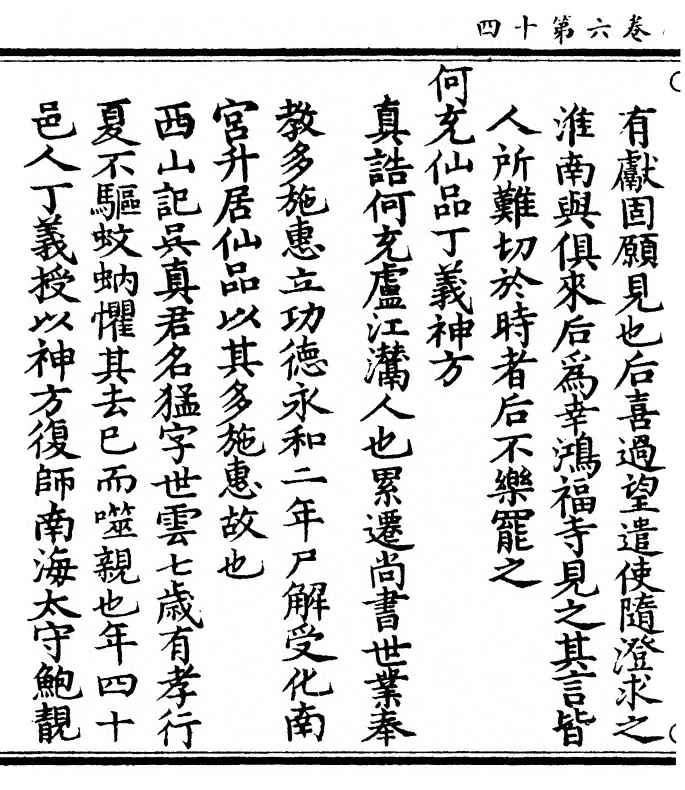 卷六第十四
有獻固願見也后喜過望遣使隨澄求之
淮南與俱來后爲幸鴻福寺見之其言皆
人所難切於時者后不樂罷之
何充仙品丁義神方
真誥何充廬江灊人也累遷尚書世業奉
教多施惠立功德永和二年尸解受化南
宮升居仙品以其多施惠故也
西山記吳真君名猛字世雲七歲有孝行
夏不驅蚊蚋懼其去已而噬親也年四十
邑人丁義授以神方復師南海太守鮑靚